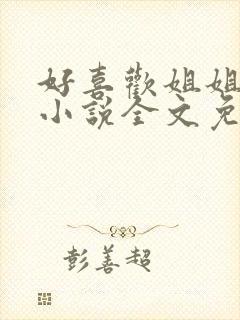 好喜歡姐姐
小說全文免
彭善超